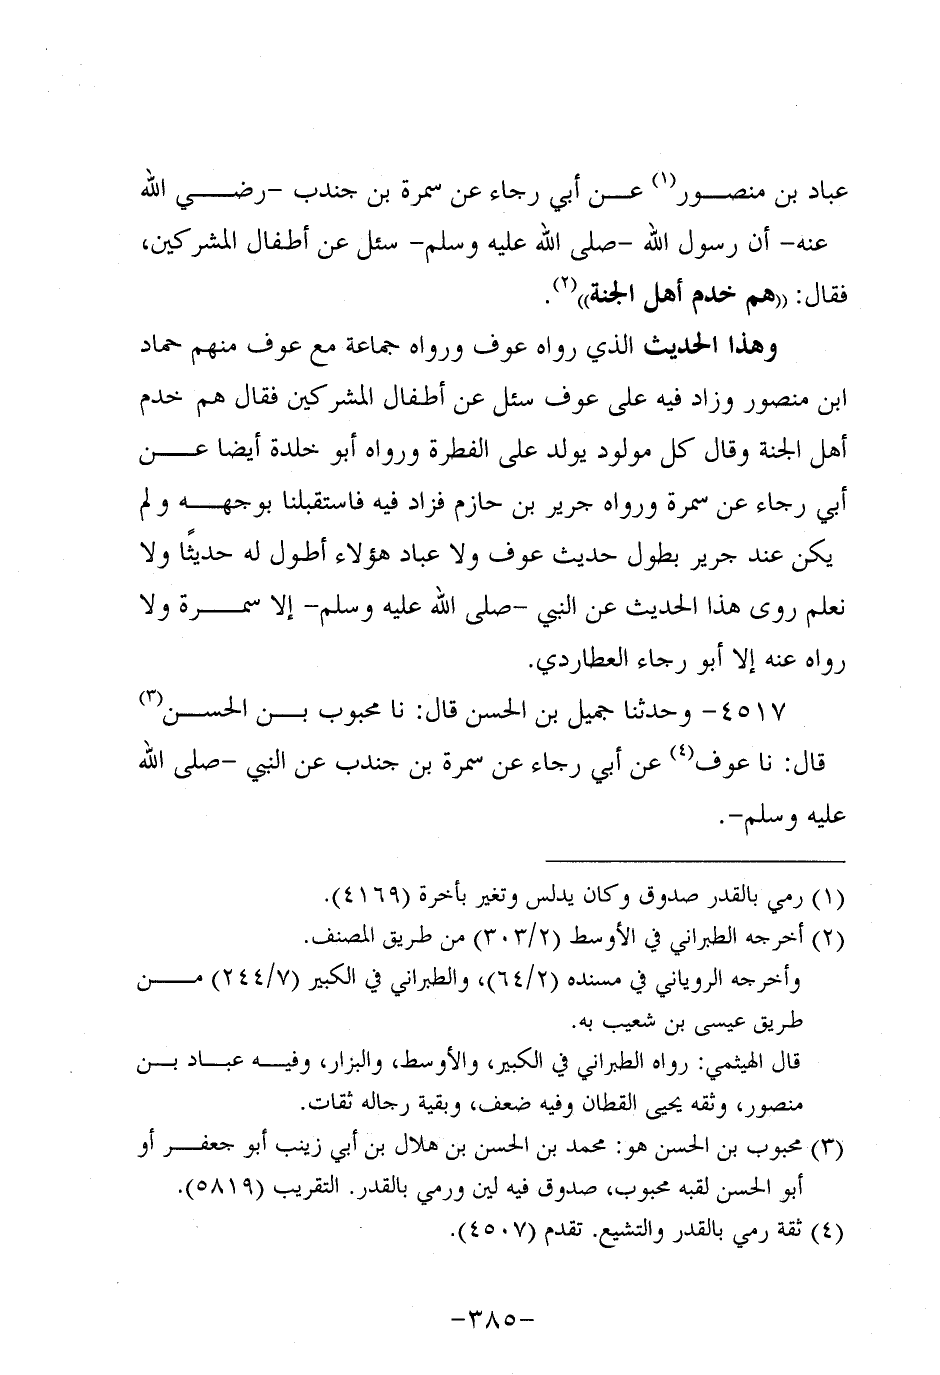 عباد بن منصور(١) عن أبي رجاء عن سمرة بن جندب -رضي الله
عنه- أن رسول الله -صلى الله عليه وسلم- سئل عن أطفال المشركين،
فقال: ((هم خدم أهل الجنة))(٢).
وهذا الحديث الذي رواه عوف ورواه جماعة مع عوف منهم حماد
ابن منصور وزاد فيه على عوف سئل عن أطفال المشركين فقال هم خدم
أهل الجنة وقال كل مولود يولد على الفطرة ورواه أبو خلدة أيضا عن
أبي رجاء عن سمرة ورواه جرير بن حازم فزاد فيه فاستقبلنا بوجهه ولم
يكن عند جرير بطول حديث عوف ولا عباد هؤلاء أطول له حديثًا ولا
نعلم روى هذا الحديث عن النبي -صلى الله عليه وسلم- إلا سمرة ولا
رواه عنه إلا أبو رجاء العطاردي.
٤٥١٧- وحدثنا جميل بن الحسن قال: نا محبوب بن الحسن(٣)
قال: نا عوف(٤) عن أبي رجاء عن سمرة بن جندب عن النبي -صلى الله
عليه وسلم-.
(١) رمي بالقدر صدوق وكان يدلس وتغير بأخرة (٤١٦٩).
(٢) أخرجه الطبراني في الأوسط (٣٠٣/٢) من طريق المصنف.
وأخرجه الروياني في مسنده (٦٤/٢)، والطبراني في الكبير (٢٤٤/٧) من
طريق عيسى بن شعيب به.
قال الهيثمي: رواه الطبراني في الكبير، والأوسط، والبزار، وفيه عباد بن
منصور، وثقه يحيى القطان وفيه ضعف، وبقية رجاله ثقات.
(٣) محبوب بن الحسن هو: محمد بن الحسن بن هلال بن أبي زينب أبو جعفر أو
أبو الحسن لقبه محبوب، صدوق فيه لين ورمي بالقدر. التقريب (٥٨١٩).
(٤) ثقة رمي بالقدر والتشيع. تقدم (٤٥٠٧).
-٣٨٥-